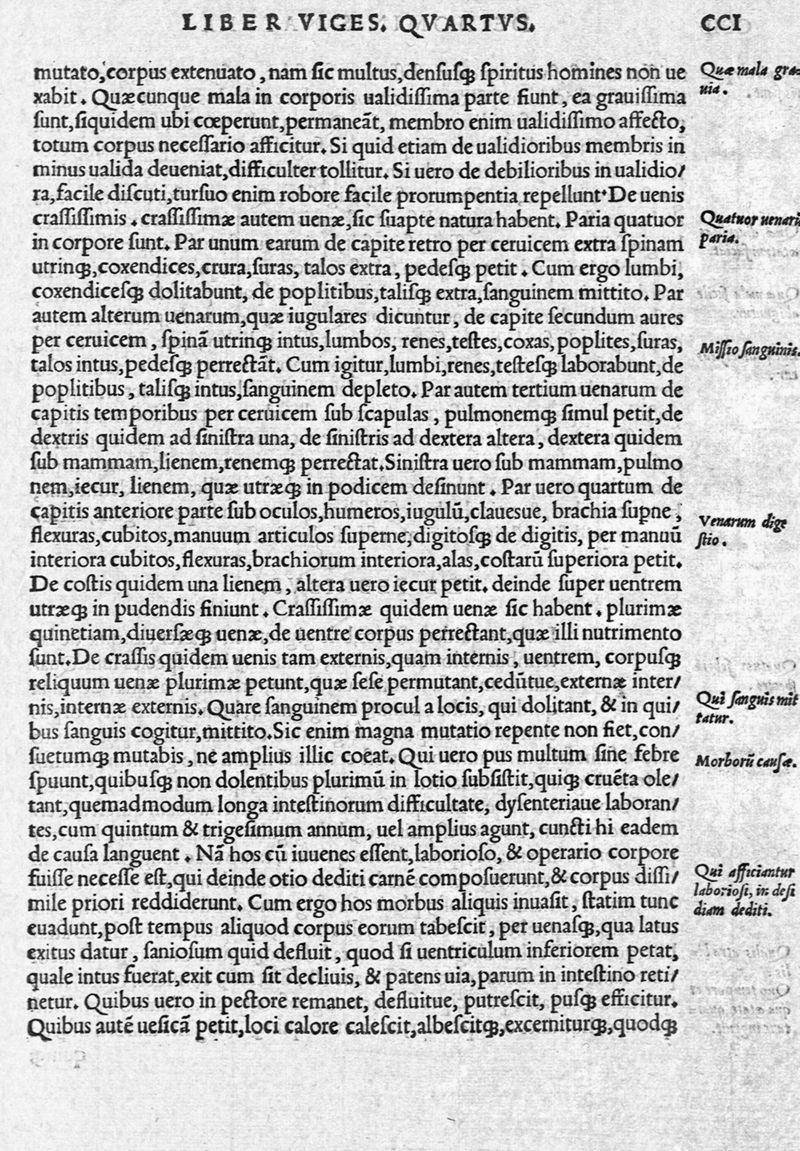 LIBER VIGES. QVARTVS. CCI
mutato, corpus extenuato, nam sic multus, densusq; spiritus homines non ue
xabit. Quæcunque mala in corporis ualidissima parte fiunt, ea grauissima
sunt, siquidem ubi cœperunt, permaneãt, membro enim ualidissimo affecto,
totum corpus necessario afficitur. Si quid etiam de ualidioribus membris in
minus ualida deueniat, difficulter tollitur. Si uero de debilioribus in ualidio/
ra, facile discuti, tursuo enim robore facile prorumpentia repellunt. De uenis
crassissimis. crassissimæ autem uenæ, sic suapte natura habent. Paria quatuor
in corpore sunt. Par unum earum de capite retro per ceruicem extra spinam
utrinq;, coxendices, crura, suras, talos extra, pedesq; petit. Cum ergo lumbi,
coxendicesq; dolitabunt, de poplitibus, talisq; extra, sanguinem mittito. Par
autem alterum uenarum, quæ iugulares dicuntur, de capite secundum aures
per ceruicem, spinã utrinq; intus, lumbos, renes, testes, coxas, poplites, suras,
talos intus, pedesq; perrectãt. Cum igitur, lumbi, renes, testesq; laborabunt, de
poplitibus, talisq; intus, sanguinem depleto. Par autem tertium uenarum de
capitis temporibus per ceruicem sub scapulas, pulmonemq; simul petit, de
dextris quidem ad sinistra una, de sinistris ad dextera altera, dextera quidem
sub mammam, lienem, renemq; perrectat. Sinistra uero sub mammam, pulmo
nem, iecur, lienem, quæ utræq; in podicem desinunt. Par uero quartum de
capitis anteriore parte sub oculos, humeros, iugulũ, clauesue, brachia supne,
flexuras, cubitos, manuum articulos superne, digitosq; de digitis, per manuũ
interiora cubitos, flexuras, brachiorum interiora, alas, costarũ superiora petit.
De costis quidem una lienem, altera uero iecur petit. deinde super uentrem
utræq; in pudendis finiunt. Crassissimæ quidem uenæ sic habent. plurimæ
quinetiam, diuersæq; uenæ, de uentre corpus perrectant, quæ illi nutrimento
sunt. De crassis quidem uenis tam externis, quam internis, uentrem, corpusq;
reliquum uenæ plurimæ petunt, quæ sese permutant, cedũtue, externæ inter/
nis, internæ externis. Quare sanguinem procul a locis, qui dolitant, & in qui/
bus sanguis cogitur, mittito. Sic enim magna mutatio repente non fiet, con/
suetumq; mutabis, ne amplius illic coeat. Qui uero pus multum sine febre
spuunt, quibusq; non dolentibus plurimũ in lotio subsistit, quiq; cruẽta ole/
tant, quemadmodum longa intestinorum difficultate, dysenteriaue laboran/
tes, cum quintum & trigesimum annum, uel amplius agunt, cuncti hi eadem
de causa languent. Nã hos cũ iuuenes essent, laborioso, & operario corpore
fuisse necesse est, qui deinde otio dediti carnẽ composuerunt, & corpus dissi/
mile priori reddiderunt. Cum ergo hos morbus aliquis inuasit, statim tunc
euadunt, post tempus aliquod corpus eorum tabescit, per uenasq;, qua latus
exitus datur, saniosum quid defluit, quod si uentriculum inferiorem petat,
quale intus fuerat, exit cum sit decliuis, & patens uia, parum in intestino reti/
netur. Quibus uero in pectore remanet, defluitue, putrescit, pusq; efficitur.
Quibus autẽ uesicã petit, loci calore calescit, albescitq;, excerniturq;, quodq;
Quæ mala gra=
uia.
Quatuor uenarũ
paria.
Missio sanguinis.
Venarum dige
stio.
Qui sanguis mit
tatur.
Morborũ causæ.
Qui afficiantur
laboriosi, in desi
diam dediti.